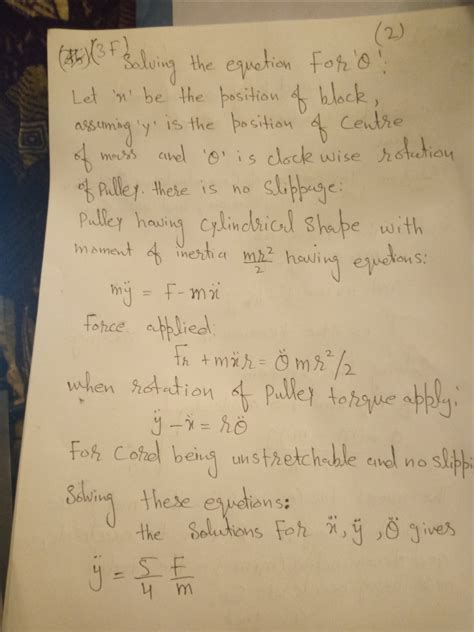 (2)
(3F) Solving the equation For 'θ':
Let 'x' be the position of block,
assuming 'y' is the position of Centre
of mass and 'θ' is clock wise rotation
of Pulley. there is no Slippage:
Pulley having Cylindrical Shape with
moment of inertia mr²/2 having equetons:
mÿ = F - mẍ
Force applied:
Fr + mẍr = θ̈ mr²/2
when rotation of Pulley torque apply:
ÿ - ẍ = rθ̈
For Cord being unstretchable and no slippi
Solving these equetions:
the Solutions For ẍ, ÿ, θ̈ gives
ÿ = 5/4 F/m